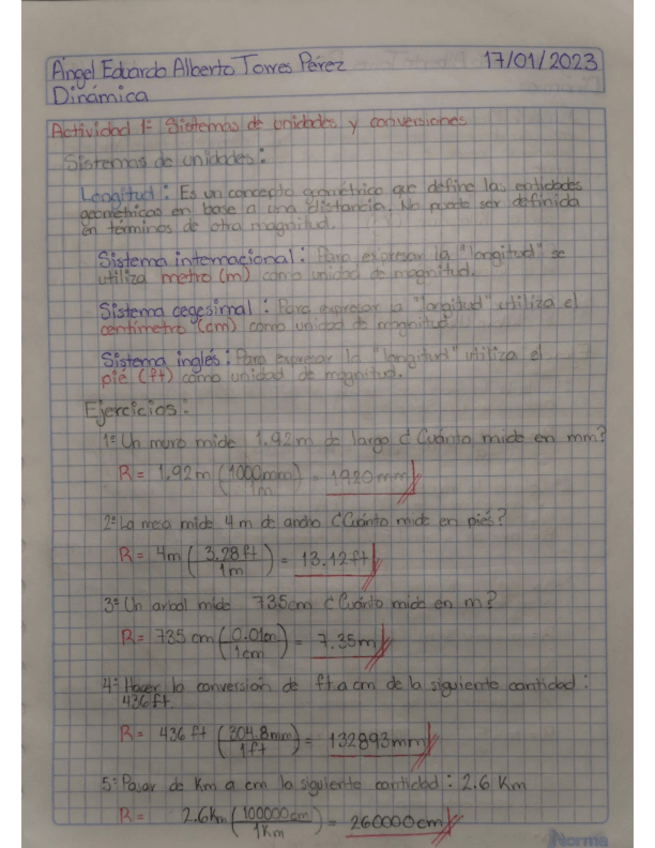 Ángel Eduardo Alberto Torres Pérez 17/01/2023
Dinámica
Actividad 1: Sistemas de unidades y conversiones
Sistemas de unidades:
Longitud: Es un concepto geométrico que define las entidades
geométricas en base a una distancia. No puede ser definida
en términos de otra magnitud.
Sistema internacional: Para expresar la "longitud" se
utiliza metro (m) como unidad de magnitud.
Sistema cegesimal: Para expresar la "longitud" utiliza el
centímetro (cm) como unidad de magnitud
Sistema inglés: Para expresar la "longitud" utiliza el
pié (ft) como unidad de magnitud.
Ejercicios:
1: Un muro mide 1.92m de largo ¿Cuánto mide en mm?
R= 1.92m (1000mm/1m) = 1920mm
2: La mesa mide 4m de ancho ¿Cuánto mide en piés?
R= 4m (3.28ft/1m) = 13.12ft
3: Un arbol mide 735cm ¿Cuánto mide en m?
R= 735 cm (0.01m/1cm) = 7.35m
4: Hacer la conversión de ft a cm de la siguiente cantidad:
436ft.
R= 436 ft (304.8mm/1ft) = 132893mm
5: Pasar de Km a cm la siguiente cantidad: 2.6 Km
R= 2.6Km (100000cm/1Km) = 260000cm
Norma